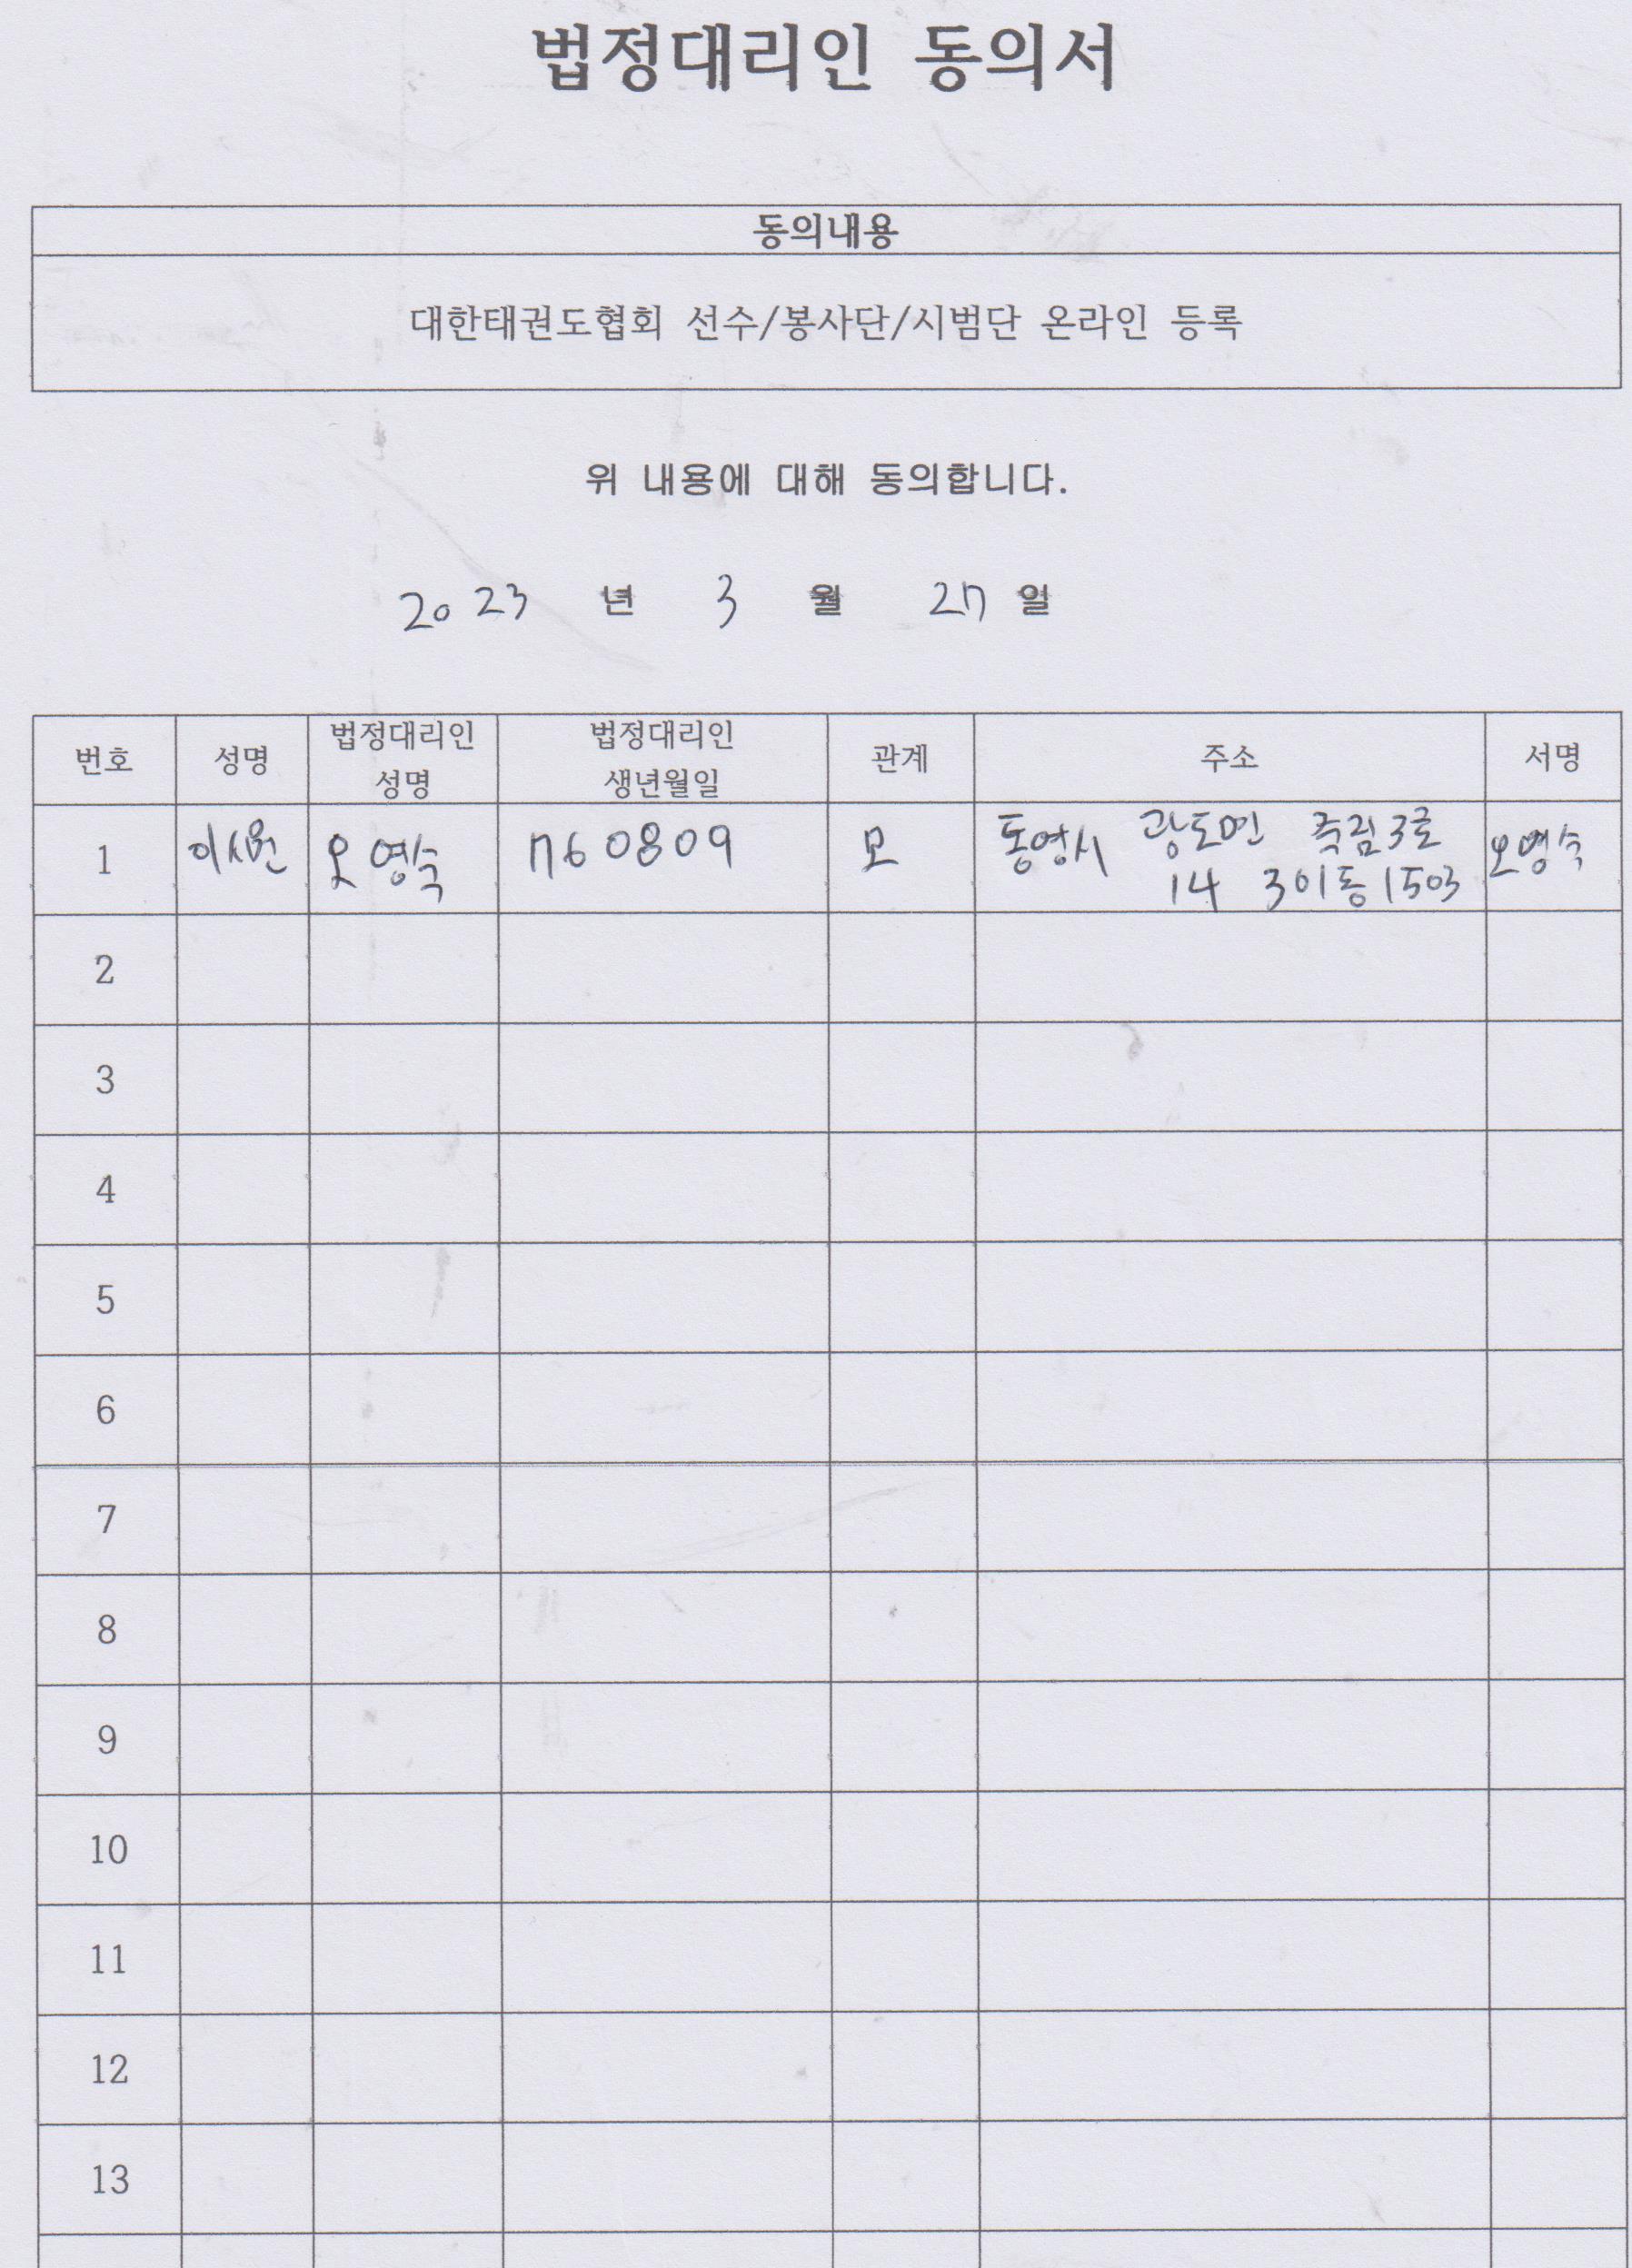 법정대리인 동의서
동의내용
대한태권도협회 선수/봉사단/시범단 온라인 등록
위 내용에 대해 동의합니다.
2023 년 3 월 27 일
번호 성명 법정대리인 성명 법정대리인 생년월일 관계 주소 서명
1 이시원 오영숙 760809 모 통영시 광도면 죽림3로 오영숙
14 301동 1503
2
3
4
5
6
7
8
9
10
11
12
13